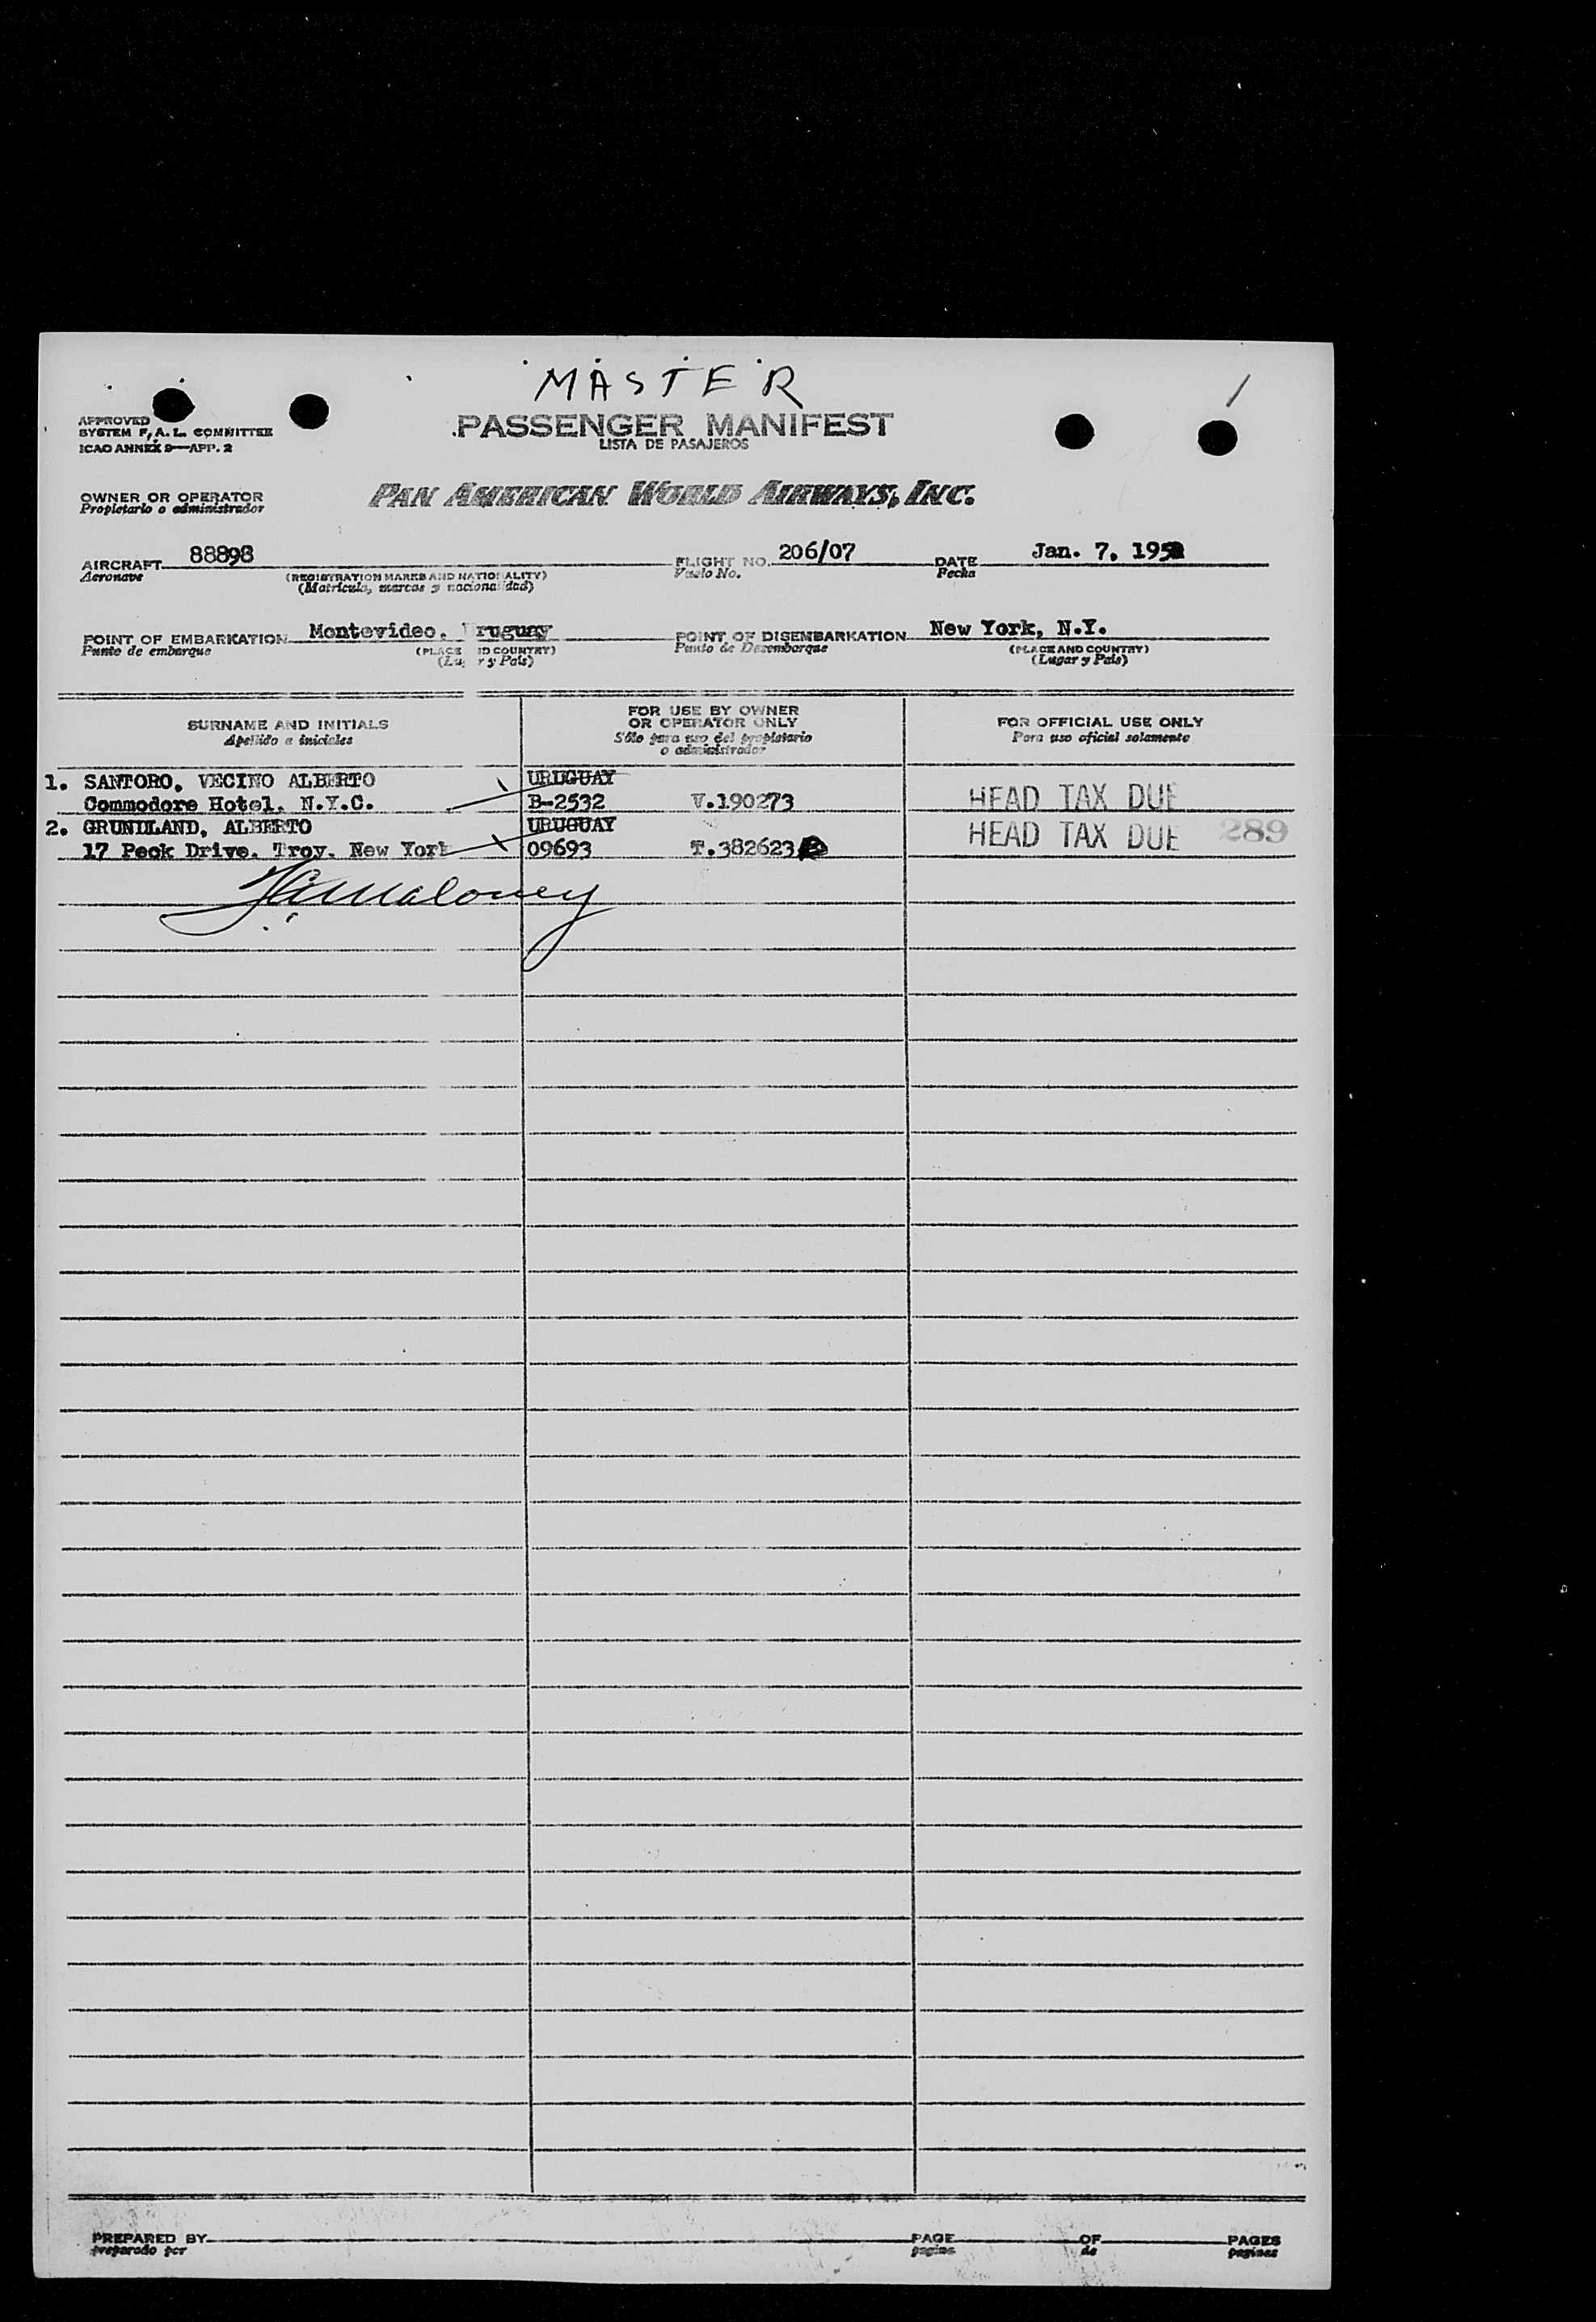 MASTER
/
APPROVED
SYSTEM F.A.L. COMMITTEE
ICAO ANNEX 9—APP. 2
PASSENGER MANIFEST
LISTA DE PASAJEROS
OWNER OR OPERATOR
Propietario o administrador
PAN AMERICAN WORLD AIRWAYS, INC.
AIRCRAFT 88898 FLIGHT NO. 206/07 DATE Jan. 7, 195
Aeronave (REGISTRATION MARKS AND NATIONALITY) Vuelo No. Fecha
(Matricula, marcas y nacionalidad)
POINT OF EMBARKATION Montevideo, Uruguay POINT OF DISEMBARKATION New York, N.Y.
Punto de embarque (PLACE AND COUNTRY) Punto de Desembarque (PLACE AND COUNTRY)
(Lugar y Pais) (Lugar y Pais)
SURNAME AND INITIALS
Apellido e iniciales
FOR USE BY OWNER
OR OPERATOR ONLY
Sólo para uso del propietario
o administrador
FOR OFFICIAL USE ONLY
Para uso oficial solamente
1. SANTORO, VECINO ALBERTO URUGUAY
Commodore Hotel, N.Y.C. B-2532 V.190273 HEAD TAX DUE
2. GRUNDLAND, ALBERTO URUGUAY HEAD TAX DUE 289
17 Peck Drive, Troy, New York 09693 T.382623
PREPARED BY PAGE OF PAGES
preparado por pagina de paginas